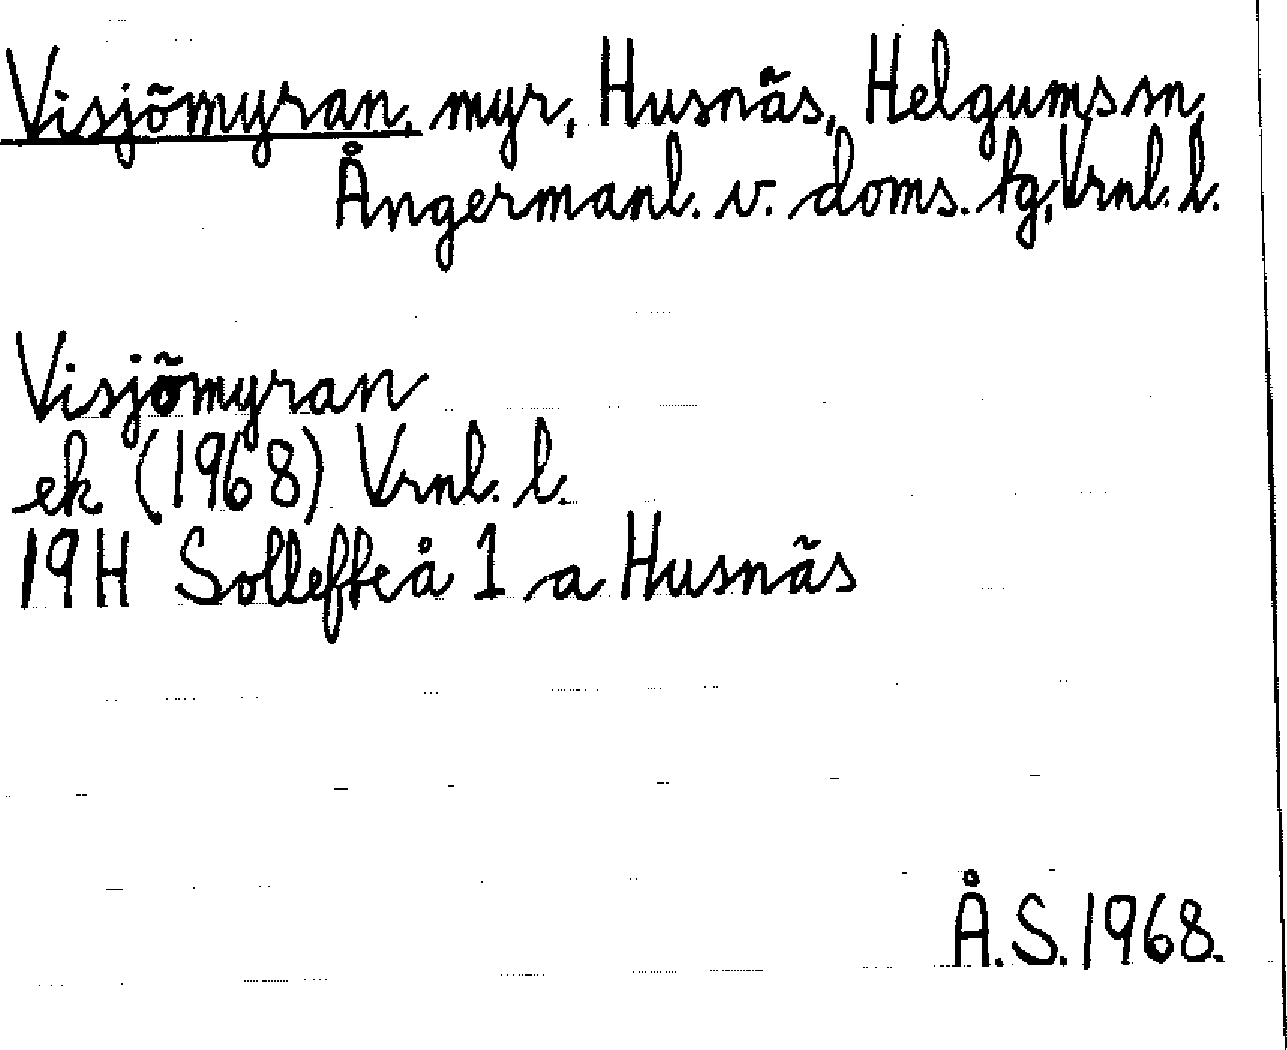 Visjömyran, myr, Husnäs, Helgums sn,
Ångermanl. v. doms. tg, Vrnl. l.
Visjömyran
ek (1968) Vrnl. l.
19H Sollefteå 1 a Husnäs
Å.S. 1968.